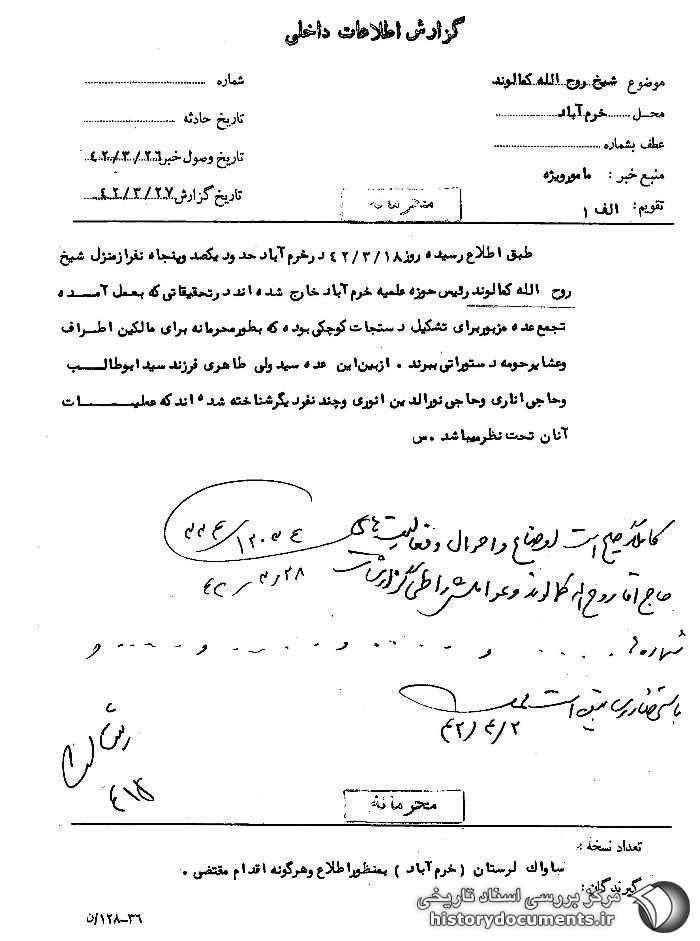 گزارش اطلاعات داخلی
موضوع شیخ روح الله کمالوند
شماره
محل خرم آباد
تاریخ حادثه
عطف بشماره
تاریخ وصول خبر ۴۲/۳/۲۶
منبع خبر: مامورویژه
تاریخ گزارش ۴۲/۳/۲۷
تقویم: الف ۱
محرمانه
طبق اطلاع رسیده روز ۴۲/۳/۱۸ در خرم آباد حدود یکصد وپنجاه نفر از منزل شیخ
روح الله کمالوند رئیس حوزه علمیه خرم آباد خارج شده اند در تحقیقاتی که بعمل آمده
تجمع عده مزبور برای تشکیل دستجات کوچکی بوده که بطور محرمانه برای مالکین اطراف
وعشایر حومه دستوراتی ببرند . از بین این عده سید ولی طاهری فرزند سید ابوطالب
وحاجی اناری وحاجی نورالدین انوری وچند نفر دیگر شناخته شده اند که عملیات
آنان تحت نظر میباشد . س
کاملاً صحیح است اوضاع و احوال و فعالیت های
حاج آقا روح اله کمالوند و عواملش را طی گزارشات
۴۲/۳/۲۸
شماره
و و و و
است
۴۲/۴/۲
محرمانه
تعداد نسخه :
ساواک لرستان ( خرم آباد ) بمنظور اطلاع وهرگونه اقدام مقتضی .
گیرندگان:
۳۶-۱۲۸/ن
مرکز بررسی اسناد تاریخی
historydocuments.ir